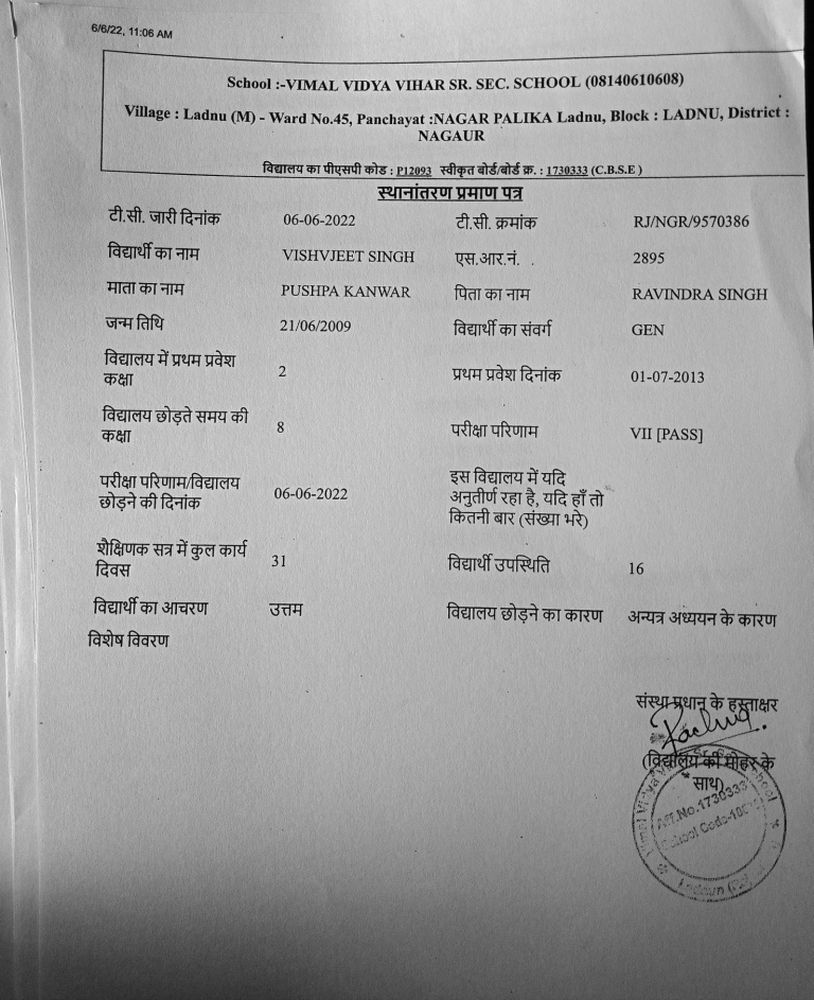 6/6/22, 11:06 AM
School :-VIMAL VIDYA VIHAR SR. SEC. SCHOOL (08140610608)
Village : Ladnu (M) - Ward No.45, Panchayat :NAGAR PALIKA Ladnu, Block : LADNU, District :
NAGAUR
विद्यालय का पीएसपी कोड : P12093 स्वीकृत बोर्ड/बोर्ड क्र. : 1730333 (C.B.S.E )
स्थानांतरण प्रमाण पत्र
टी.सी. जारी दिनांक 06-06-2022 टी.सी. क्रमांक RJ/NGR/9570386
विद्यार्थी का नाम VISHVJEET SINGH एस.आर.नं. 2895
माता का नाम PUSHPA KANWAR पिता का नाम RAVINDRA SINGH
जन्म तिथि 21/06/2009 विद्यार्थी का संवर्ग GEN
विद्यालय में प्रथम प्रवेश
कक्षा 2 प्रथम प्रवेश दिनांक 01-07-2013
विद्यालय छोड़ते समय की
कक्षा 8 परीक्षा परिणाम VII [PASS]
परीक्षा परिणाम/विद्यालय
छोड़ने की दिनांक 06-06-2022
इस विद्यालय में यदि
अनुतीर्ण रहा है, यदि हाँ तो
कितनी बार (संख्या भरे)
शैक्षिणक सत्र में कुल कार्य
दिवस 31 विद्यार्थी उपस्थिति 16
विद्यार्थी का आचरण उत्तम विद्यालय छोड़ने का कारण अन्यत्र अध्ययन के कारण
विशेष विवरण
संस्था प्रधान के हस्ताक्षर
(विद्यालय की मोहर के
साथ)
Aff.No.1730333
School Code-